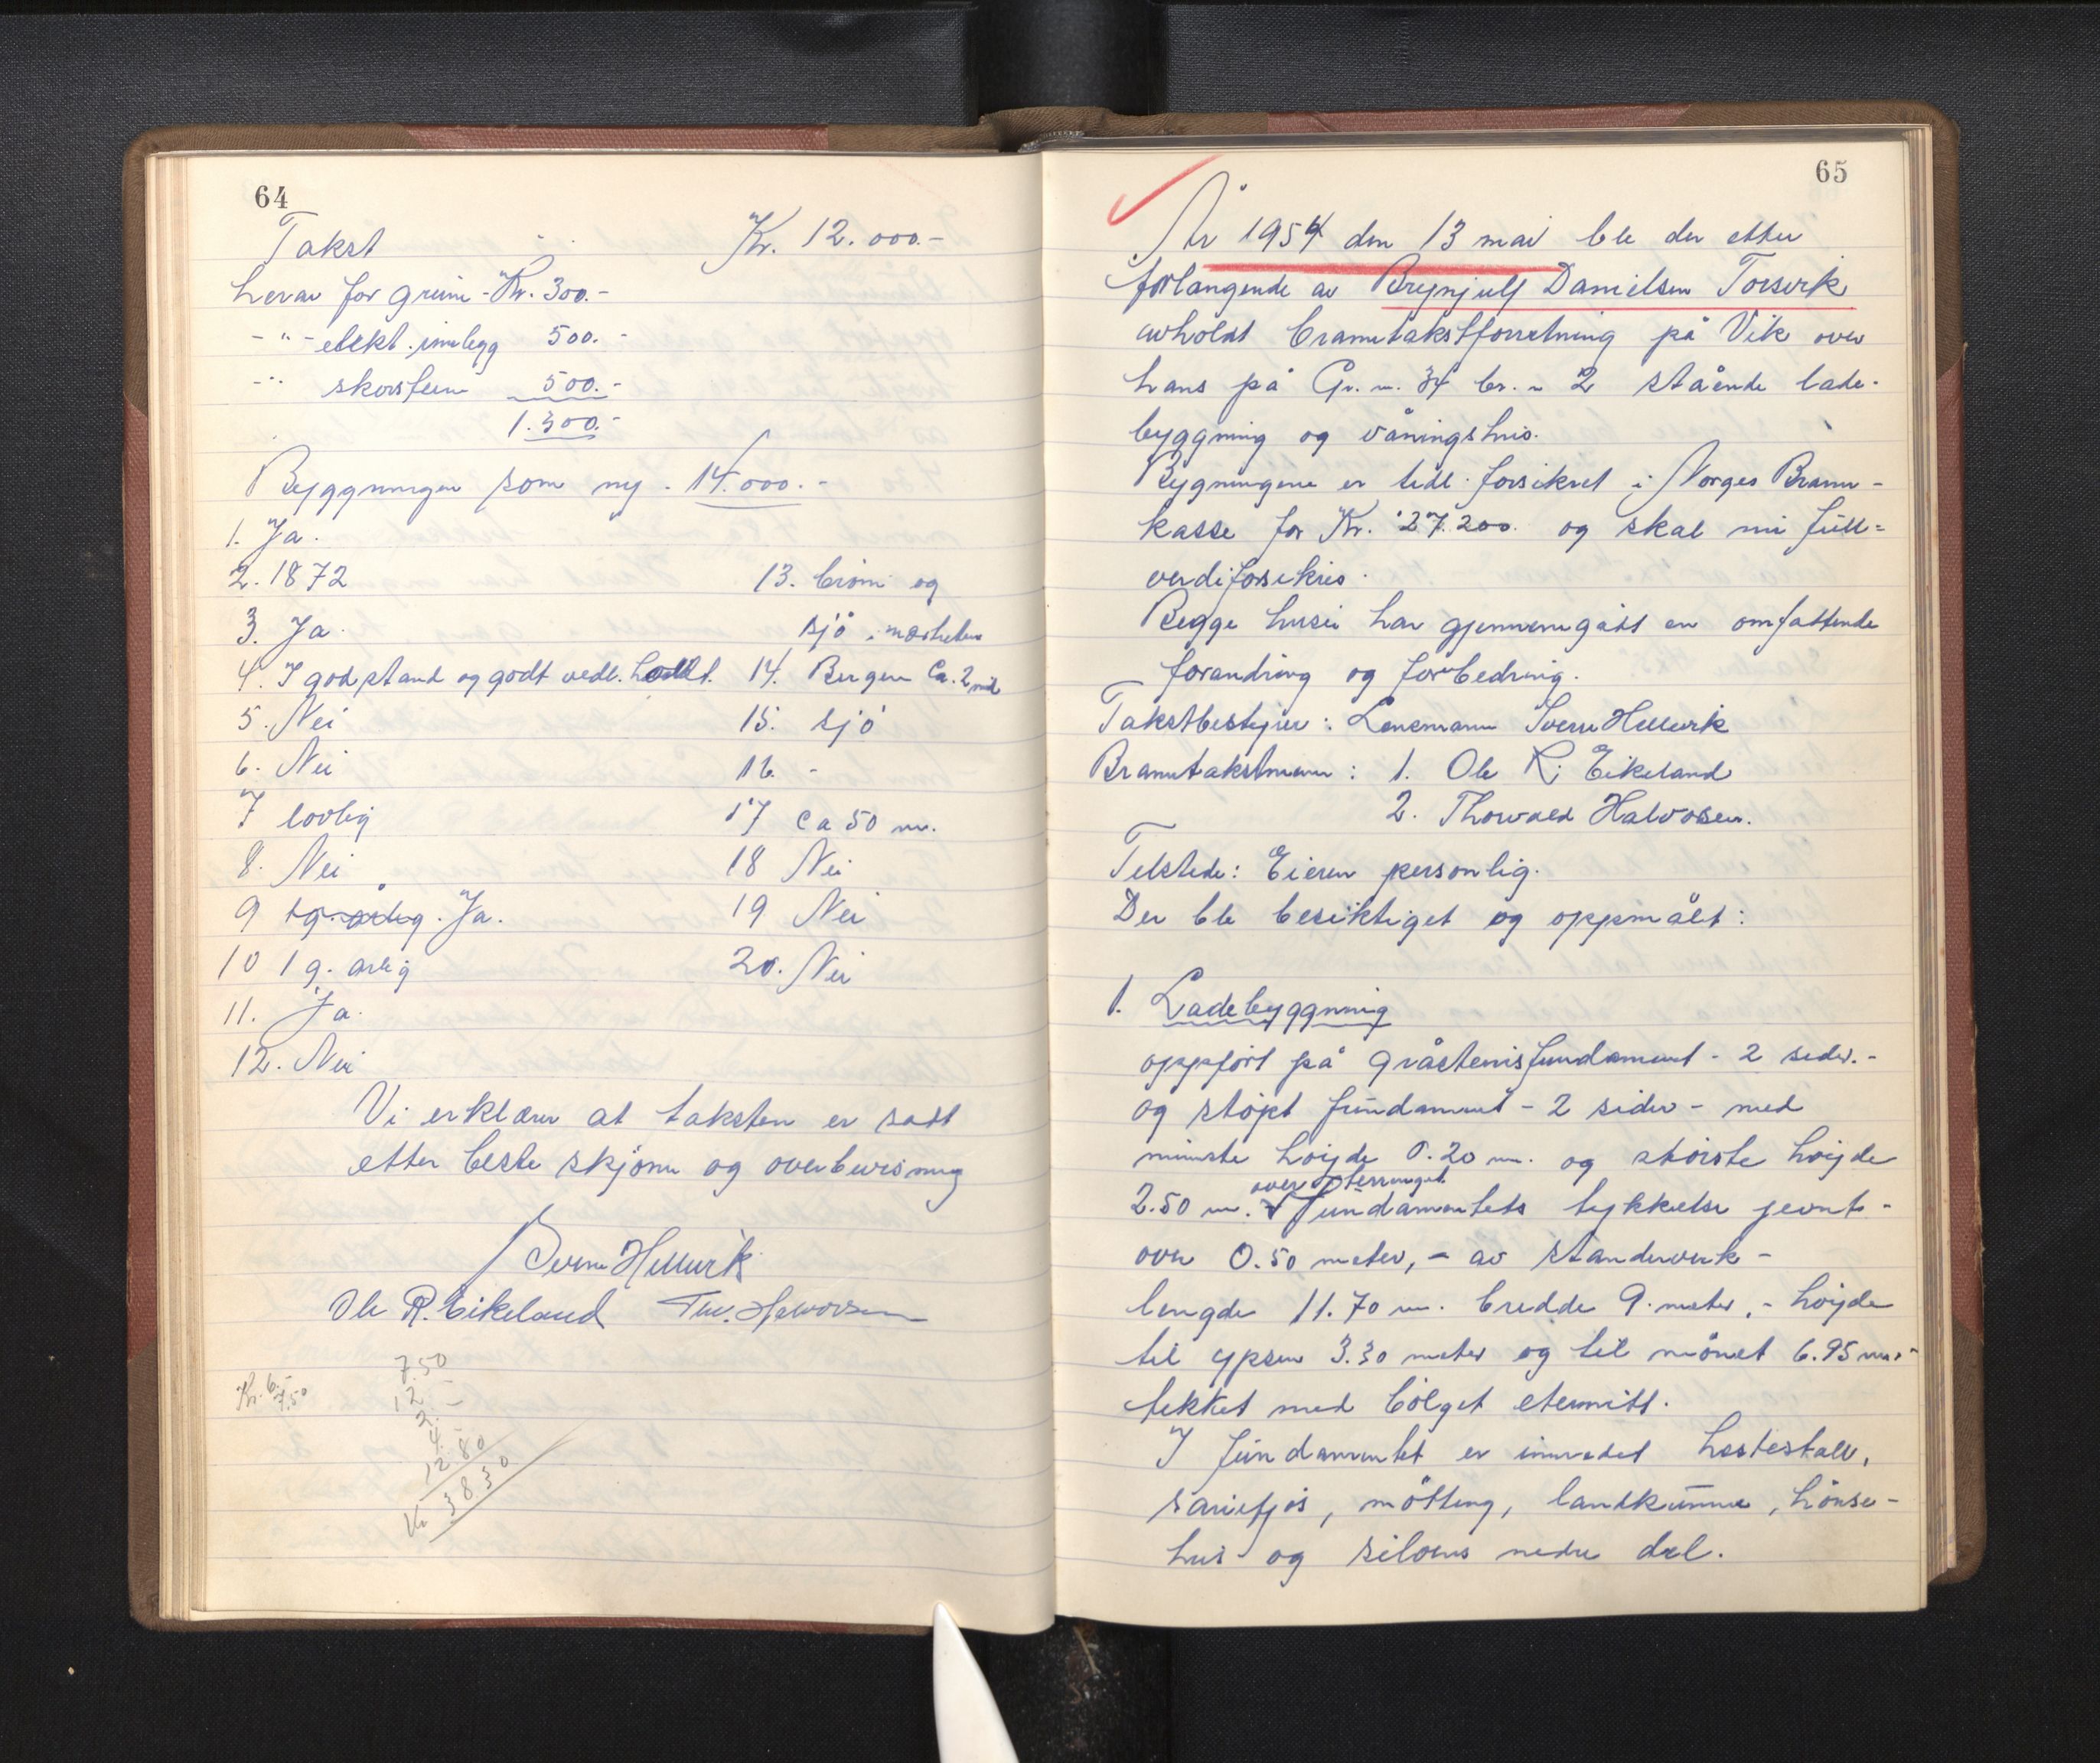 64
Takst Kr. 12.000.-
herav for grunn - Kr. 300.-
- " - elekt. innlegg 500.-
- " skorstein 500.-
1.300.-
Byggningen som ny - 14.000.-
1. Ja.
2. 1872
3. Ja.
4. I god stand og godt vedl. holdt.
5. Nei
6. Nei
7 lovlig
8. Nei
9 1 g. årlig. Ja.
10 1 g. årlig
11. Ja.
12. Nei
13. brönn og
sjö i nærheten
14. Bergen ca. 2 mil
15. sjö
16. -
17 ca 50 m.
18 Nei
19 Nei
20. Nei
Vi erklærer at taksten er satt
etter beste skjönn og overbevisning
Sverre Hellevik
Ole R. Eikeland Thv. Halvorsen
Kr. 6.-
7.50
7.50
12 -
2. -
4. -
12.80
Kr 38.30
65
År 1954 den 13 mai ble der etter
forlangende av Brynjulf Danielsen Torsvik
avholdt branntakstforretning på Vik over
hans på Gr. n. 34 br. n 2 stående lade-
byggning og våningshus.
Bygningene er tidl. forsikret i Norges Brann-
kasse for Kr. 27.200. og skal nu full-
verdiforsikres.
Begge huser har gjennemgått en omfattende
forandring og forbedring.
Takstbestyrer: Lensmann Sverre Hellevik
Branntakstmenn: 1. Ole R. Eikeland
2. Thorvald Halvorsen.
Tilstede: Eieren personlig.
Der ble besiktiget og oppmålt:
1. Ladebyggning
oppfört på gråstensfundament - 2 sider. -
og stöpt fundament - 2 sider - med
minste höijde 0.20 m. og störste höijde
over terrenget.
2.50 m. Fundamentets tykkelse jevnt-
over 0.50 meter, - av standerverk -
lengde 11.70 m. bredde 9. meter. - höijde
til gpsen 3.30 meter og til mönet 6.95 m. -
tekket med bölget eternitt.
I fundamentet er innredet hestestall,
sauefjös, mötting, landkumme, hönse-
hus og siloens nedre del.